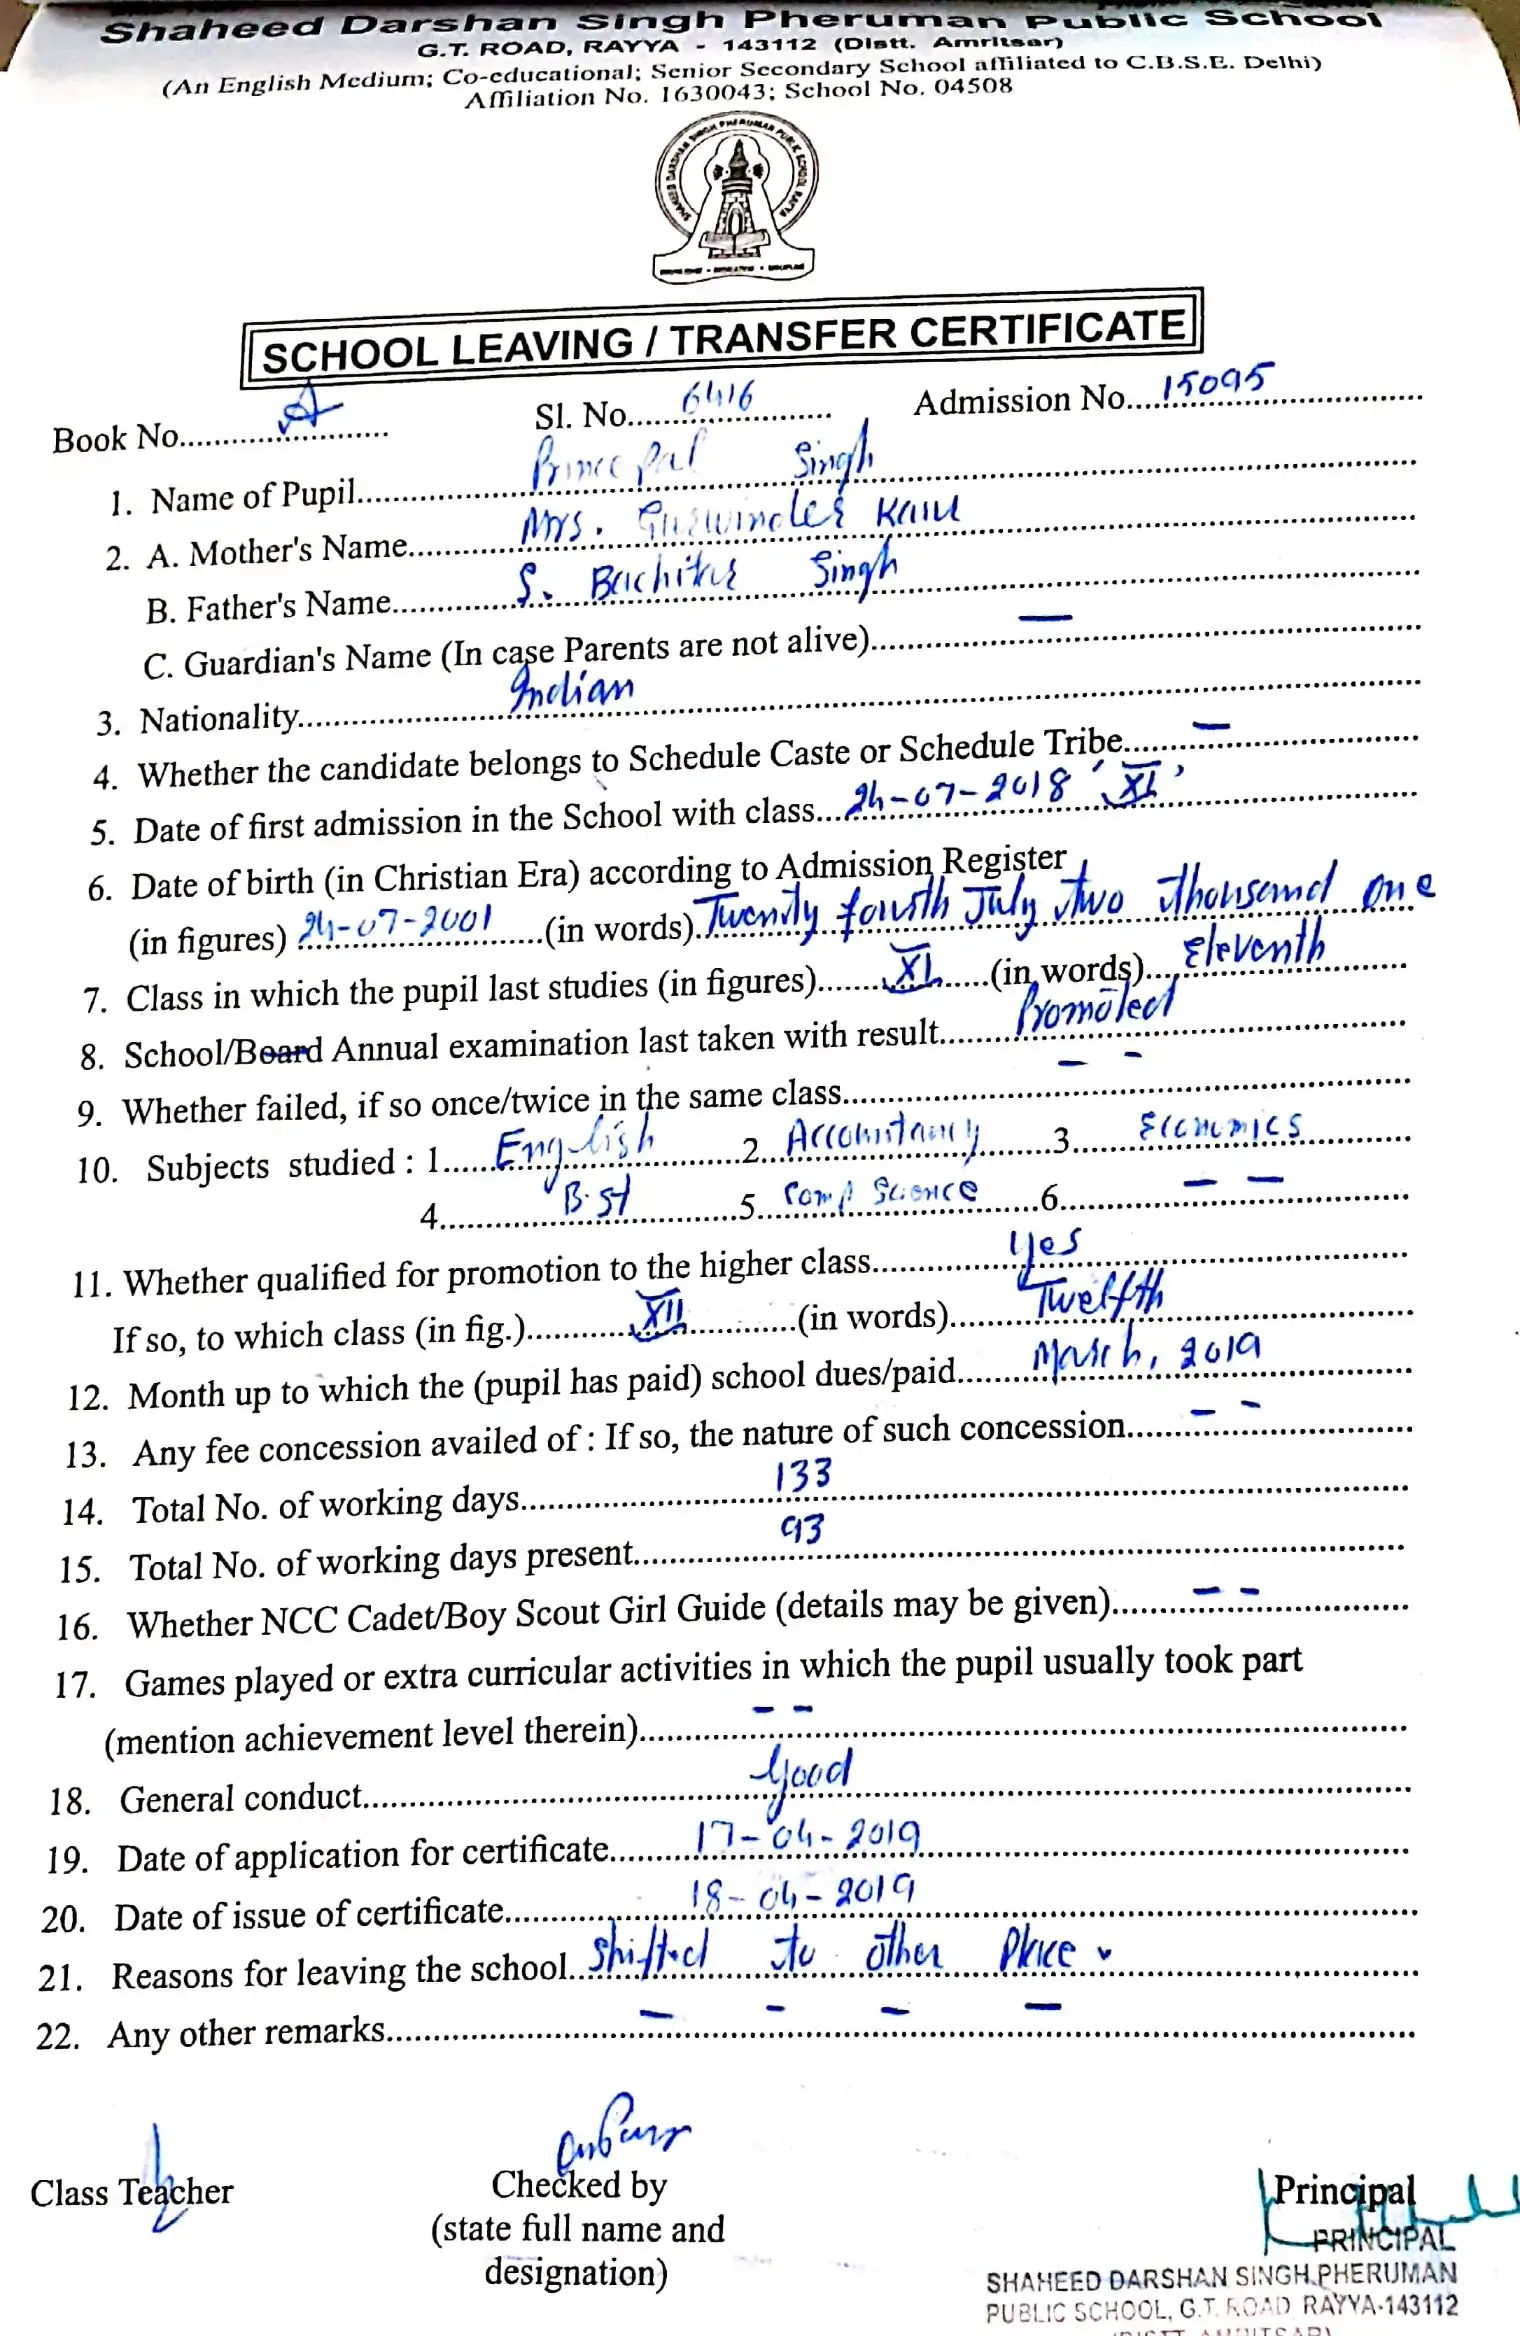 Shaheed Darshan Singh Pheruman Public School
G.T. ROAD, RAYYA - 143112 (Distt. Amritsar)
(An English Medium; Co-educational; Senior Secondary School affiliated to C.B.S.E. Delhi)
Affiliation No. 1630043; School No. 04508
SHAHEED DARSHAN SINGH PHERUMAN PUBLIC SCHOOL RAYYA
SCHOOL LEAVING / TRANSFER CERTIFICATE
Book No. A Sl. No. 6416 Admission No. 15095
1. Name of Pupil Princepal Singh
2. A. Mother's Name Mrs. Gurwinder Kaur
B. Father's Name S. Bachitar Singh
C. Guardian's Name (In case Parents are not alive) —
3. Nationality Indian
4. Whether the candidate belongs to Schedule Caste or Schedule Tribe —
5. Date of first admission in the School with class 24-07-2018 'XI'
6. Date of birth (in Christian Era) according to Admission Register
(in figures) 24-07-2001 (in words) Twenty fourth July two thousand one
7. Class in which the pupil last studies (in figures) XI (in words) Eleventh
8. School/Board Annual examination last taken with result Promoted
9. Whether failed, if so once/twice in the same class — -
10. Subjects studied : 1. English 2. Accountancy 3. Economics
4. B.st 5. Comp Science 6. — —
11. Whether qualified for promotion to the higher class Yes
If so, to which class (in fig.) XII (in words) Twelfth
12. Month up to which the (pupil has paid) school dues/paid March, 2019
13. Any fee concession availed of : If so, the nature of such concession - -
14. Total No. of working days 133
15. Total No. of working days present 93
16. Whether NCC Cadet/Boy Scout Girl Guide (details may be given) - -
17. Games played or extra curricular activities in which the pupil usually took part
(mention achievement level therein) - -
18. General conduct Good
19. Date of application for certificate 17-04-2019
20. Date of issue of certificate 18-04-2019
21. Reasons for leaving the school Shifted to other Place.
22. Any other remarks — - - —
Class Teacher Checked by Principal
(state full name and
designation)
PRINCIPAL
SHAHEED DARSHAN SINGH PHERUMAN
PUBLIC SCHOOL, G.T. ROAD RAYYA-143112
(DISTT. AMRITSAR)